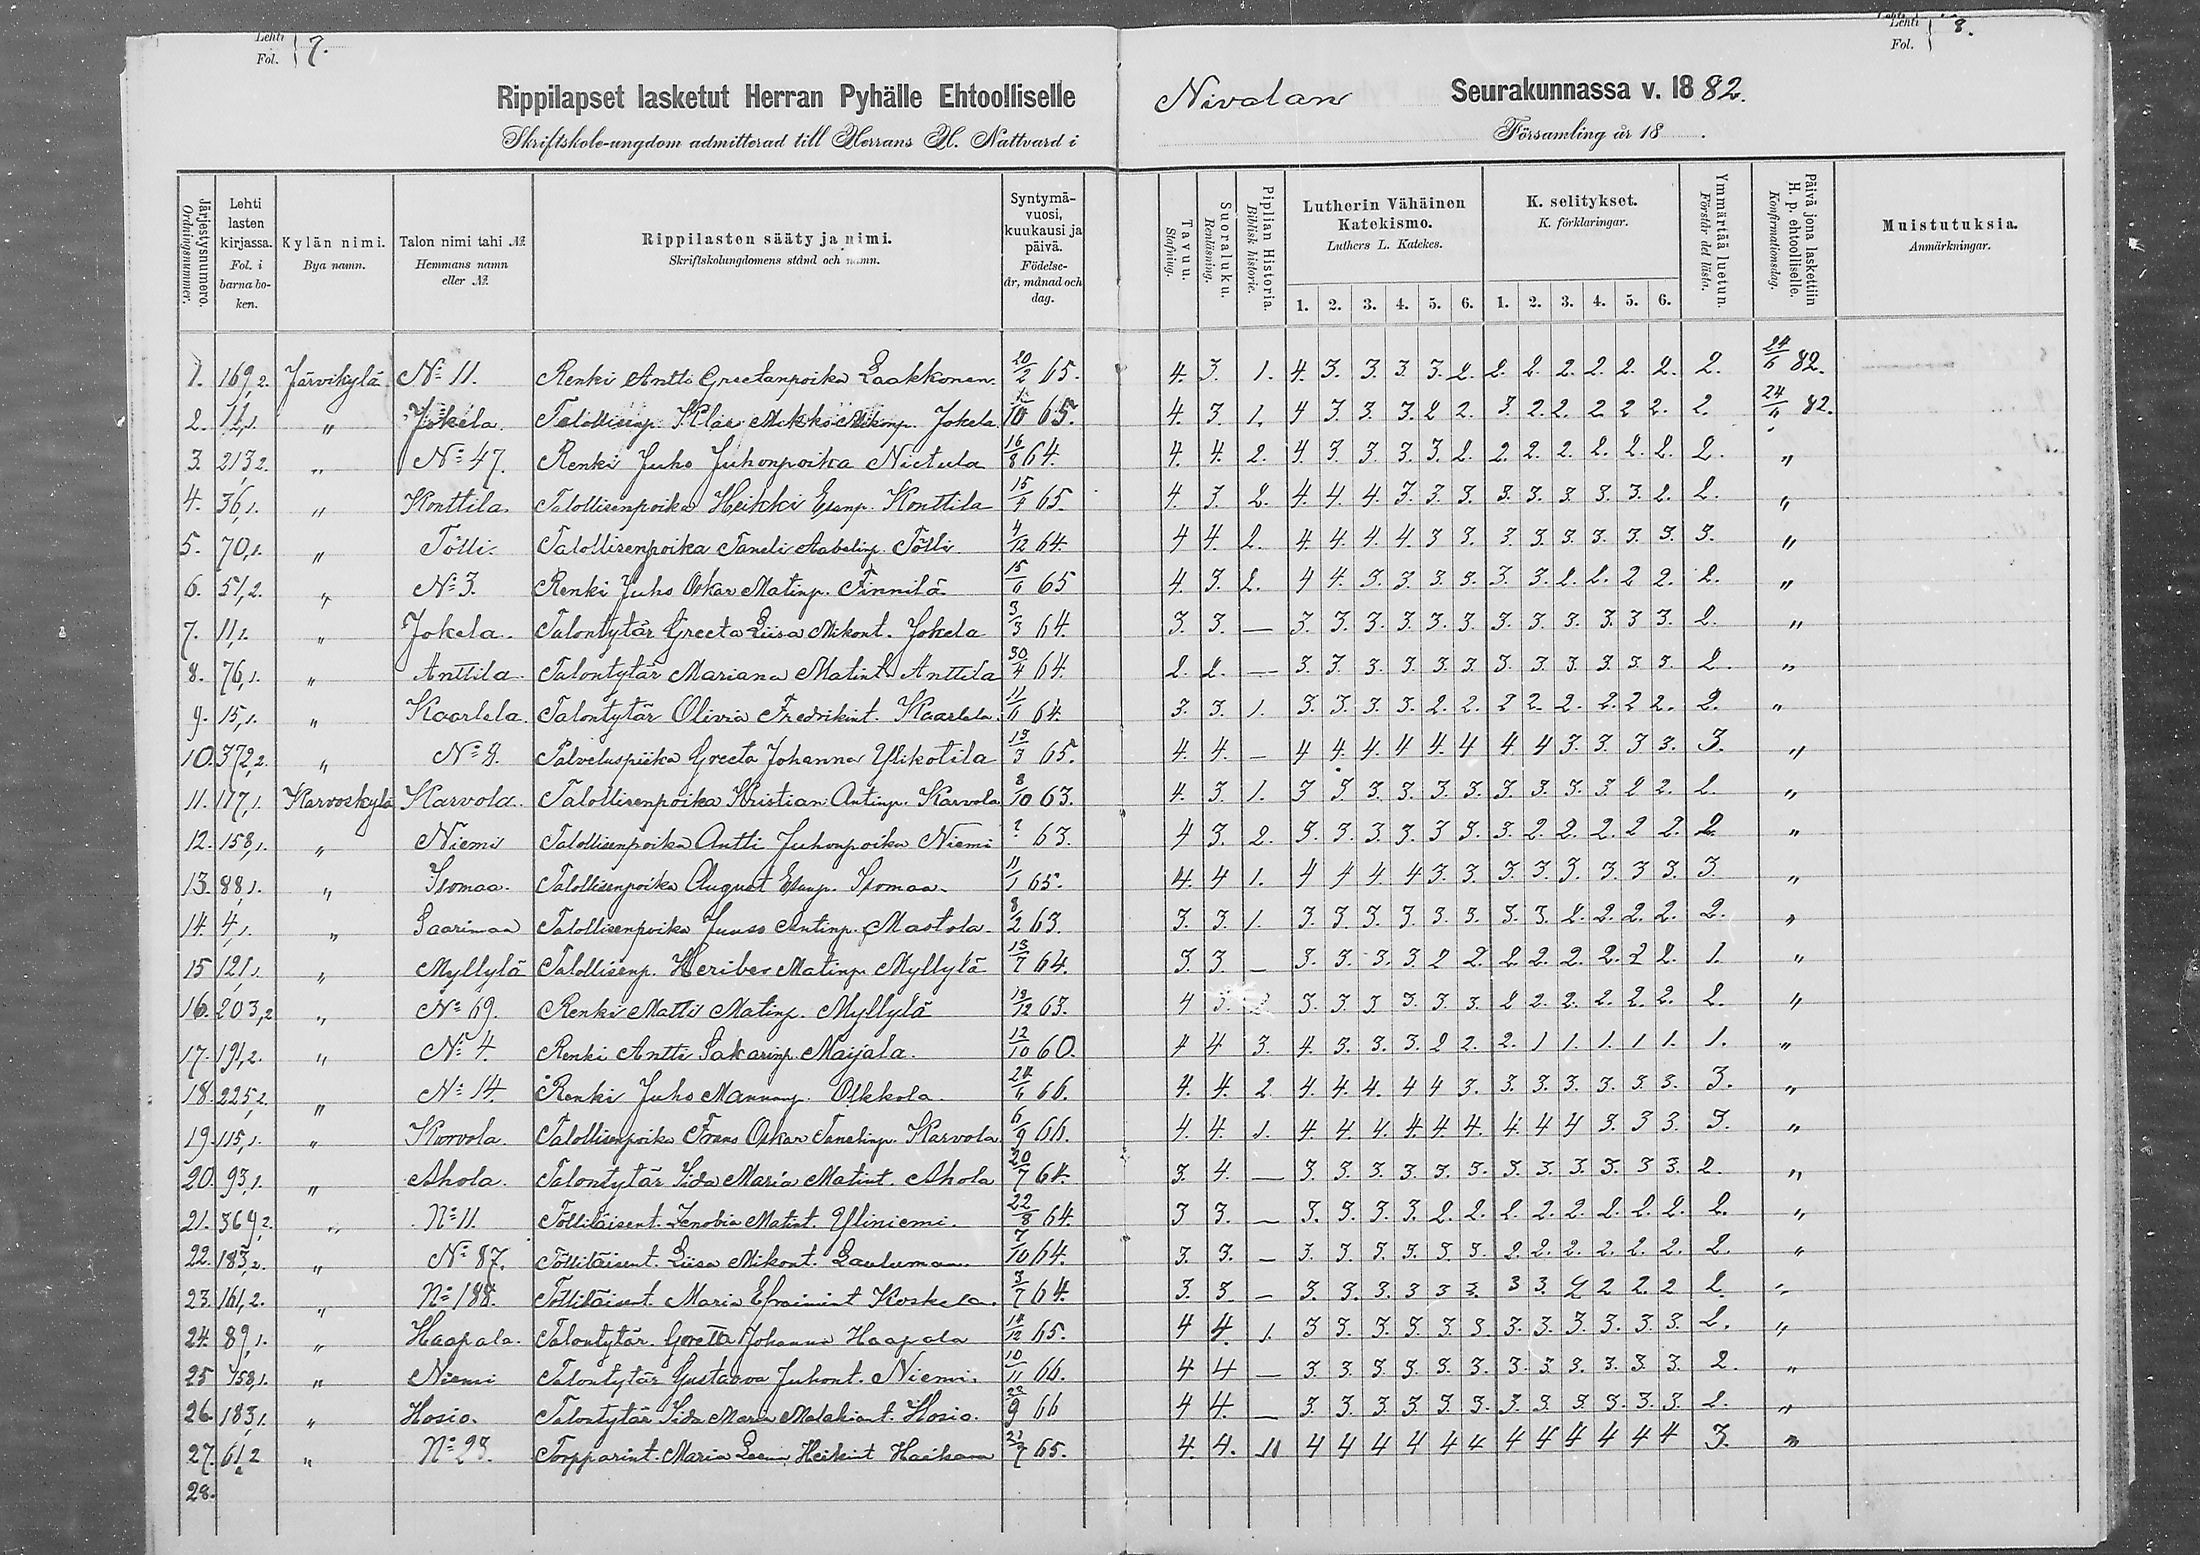 Lehti Fol. 7.
Lehti Fol. 8.
Rippilapset lasketut Herran Pyhälle Ehtoolliselle Nivalan Seurakunnassa v. 1882.
Skriftskole-ungdom admitterad till Herrans H. Nattvard i Församling år 18 .
Järjestysnumero. Ordningsnummer.
Lehti lasten kirjassa. Fol. i barna boken.
Kylän nimi. Bya namn.
Talon nimi tahi №. Hemmans namn eller №.
Rippilasten sääty ja nimi. Skriftskolungdomens stånd och namn.
Syntymävuosi, kuukausi ja päivä. Födelseår, månad och dag.
Tavuu. Stafning.
Suoraluku. Renläsning.
Piplian Historia. Biblisk historie.
Lutherin Vähäinen Katekismo. Luthers L. Katekes.
K. selitykset. K. förklaringar.
Ymmärtää luetun. Förstår det lästa.
Päivä jona laskettiin H. p. ehtoolliselle. Konfirmationsdag.
Muistutuksia. Anmärkningar.
1. 2. 3. 4. 5. 6. 1. 2. 3. 4. 5. 6.
1. 169,2. Järvikylä № 11. Renki Antti Greetanpoika Laakkonen. 20/2 65. 4. 3. 1. 4. 3. 3. 3. 3. 2. 2. 2. 2. 2. 2. 2. 2. 24/6 82.
2. 11,1. " Jokela. Mikko Jokela 65. 4. 3. 1. 4 3 3. 3. 2 2. 3. 2. 2. 2 2 2. 2. 24/6 82.
3. 213,2. " № 47. Renki Juho Juhonpoika Nietula 16/8 64. 4. 4. 2. 4. 3 3. 3. 3. 2. 2. 2. 2. 2. 2. 2. 2. "
4. 36,1. " Konttila. Talollisenpoika Heikki Esanp. Konttila 65. 4. 3 2. 4. 4. 4 3. 3. 3. 3. 3. 3 3. 3. 2. 2. "
5. 70,1. " Tölli. Talollisenpoika Taneli Aabelinp. Tölli 4/12 64. 4 4. 2. 4. 4. 4. 4 3 3. 3. 3. 3. 3. 3. 3. 3. "
6. 51,2. " № 3. Renki Juho Oskar Matinp. Finnilä 15/6 65 4. 3. 2. 4 4. 3. 3. 3. 3. 3. 3. 2. 2. 2 2. 2. "
7. 11,1. " Jokela. Talontytär Greeta Liisa Mikont. Jokela 3/3 64. 3. 3. — 3. 3. 3. 3. 3. 3. 3. 3. 3. 3. 3 3. 2. "
8. 76,1. " Anttila. Talontytär Mariana Matint. Anttila 30/4 64. 2. 2. — 3. 3. 3. 3. 3. 3. 3. 3. 3. 3. 3. 3. 2. "
9. 15,1. " Kaarlela. Talontytär Olivia Fredrikint. Kaarlela. 11/6 64. 3. 3. 1. 3. 3. 3. 3. 2. 2. 2 2. 2. 2. 2 2. 2. "
10. 372,2. " № 9. Palveluspiika Greeta Johanna Ylikotila 13/3 65. 4. 4. — 4 4. 4. 4 4. 4 4. 4 3. 3. 3 3. 3. "
11. 117,1. Karvoskylä Karvola. Talollisenpoika Kristian Antinp. Karvola. 8/10 63. 4. 3. 1. 3 3. 3. 3. 3. 3. 3. 3. 3. 3 2 2. 2. "
12. 158,1. " Niemi Talollisenpoika Antti Juhonpoika Niemi ? 63. 4 3. 2. 3. 3. 3. 3. 3 3. 3. 2. 2. 2. 2 2. 2. "
13. 88,1. " Isomaa. Talollisenpoika August Esanp. Isomaa. 11/1 65. 4. 4 1. 4 4 4 4 3. 3. 3. 3. 3. 3. 3. 3. 3. "
14. 4,1. " Saarimaa Talollisenpoika Juuso Antinp. Mastola. 8/2 63. 3. 3 1. 3. 3. 3. 3. 3. 3. 3. 3. 2. 2. 2. 2. 2. "
15 121,1. " Myllylä Talollisenp. Matinp. Myllylä 13/7 64. 3. 3. — 3. 3. 3. 3. 2 2. 2. 2. 2. 2. 2 2. 1. "
16. 203,2 " № 69. Renki Matti Matinp. Myllylä 63. 4 3. 2 3. 3 3 3. 3. 3. 2 2. 2. 2. 2. 2. 2. "
17. 191,2. " № 4. Renki Antti Sakarinp. Maijala. 12/10 60. 4 4 3. 4. 3. 3. 3. 2 2. 2. 1 1. 1. 1 1. 1. "
18. 225,2. " № 14. Renki Juho Mannanp. Olkkola. 24/6 66. 4. 4. 2 4. 4. 4. 4 4 3. 3. 3. 3. 3. 3 3. 3. "
19. 115,1. " Karvola. Talollisenpoika Frans Oskar Tanelinp. Karvola 6/9 66. 4. 4. 1. 4. 4. 4. 4. 4. 4. 4. 4 4 3. 3 3. 3. "
20. 93,1. " Ahola. Talontytär Iida Maria Matint. Ahola 20/7 64. 3. 4. — 3. 3. 3. 3. 3. 3. 3. 3. 3. 3. 3 3. 2. "
21. 364,2. " № 11. Töllitäisent. Zenobia Matint. Yliniemi. 22/8 64. 3 3. — 3. 3. 3. 3. 2. 2. 2. 2. 2. 2. 2. 2. 2. "
22. 183,2. " № 87. Töllitäisent. Liisa Mikont. Laulumaa. 7/10 64. 3. 3. — 3. 3 3. 3. 3 3. 2. 2. 2. 2. 2. 2. 2. "
23. 161,2. " № 188. Töllitäisent. Maria Efraimint Koskela. 3/7 64. 3. 3. — 3. 3. 3. 3 3 3. 3 3. 2 2 2. 2 2. "
24. 89,1. " Haapala. Talontytär Greeta Johanna Haapala 65. 4 4. 1. 3 3. 3. 3. 3. 3. 3. 3. 3. 3. 3. 3. 2. "
25 158,1. " Niemi Talontytär Gustaava Juhont. Niemi. 10/11 66. 4 4 — 3. 3. 3. 3. 3. 3. 3. 3. 3. 3. 3. 3. 2. "
26. 183,1. " Hosio. Talontytär Iida Maria Malakiant. Hosio. 22/9 66 4 4. — 3. 3. 3 3. 3. 3. 3. 3. 3. 3. 3. 3. 2. "
27. 61,2 " № 23. Torpparint. Maria Heikint 21/7 65. 4. 4. 4 4 4 4 4 4 4 4 4 4 4 4 3. "
28.